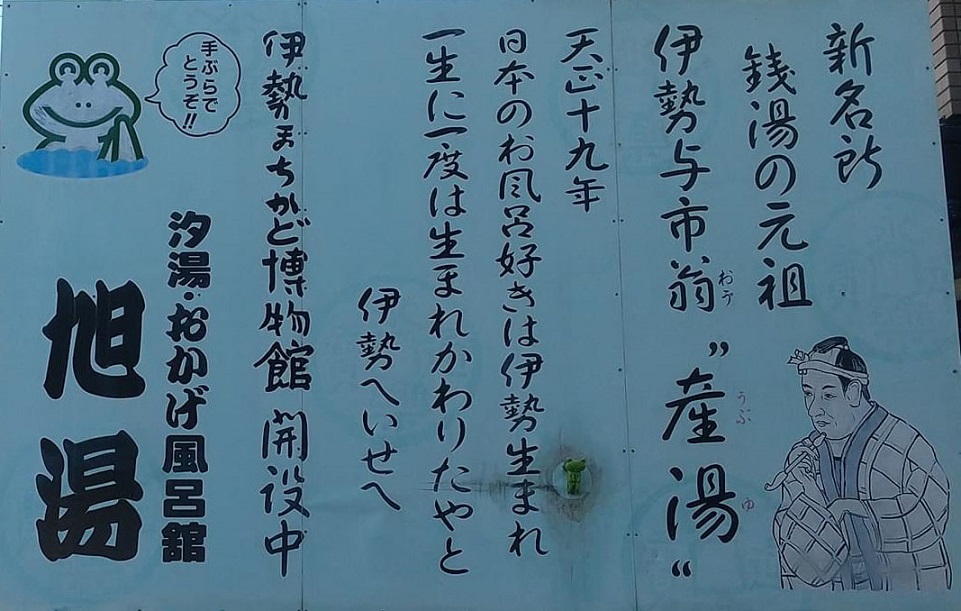 新名所
銭湯の元祖
伊勢与市翁 〝産湯〟
おう
うぶ
ゆ
天正十九年
日本のお風呂好きは伊勢生まれ
一生に一度は生まれかわりたやと
伊勢へいせへ
伊勢まちかど博物館 開設中
手ぶらで
どうぞ!!
汐湯・おかげ風呂舘
旭湯